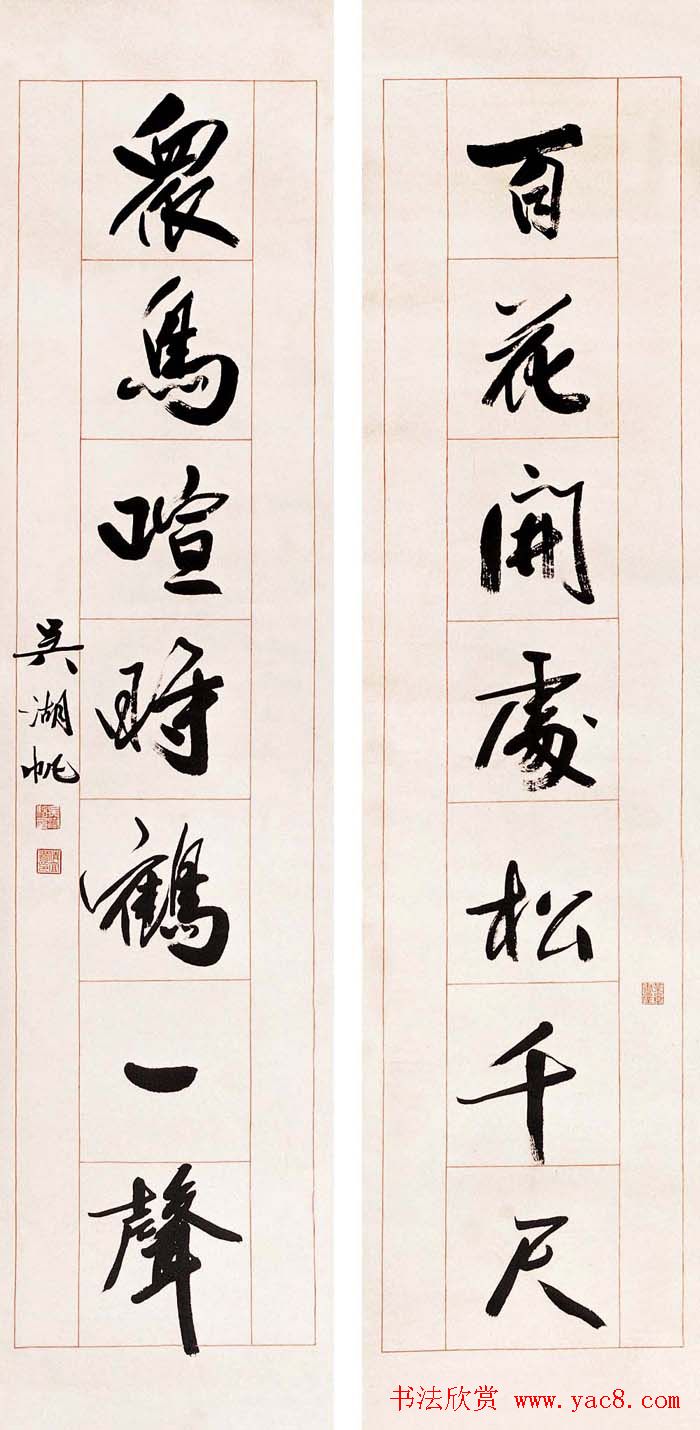 百花開處松千尺
衆鳥喧時鶴一聲
吳湖帆
书法欣赏 www.yac8.com